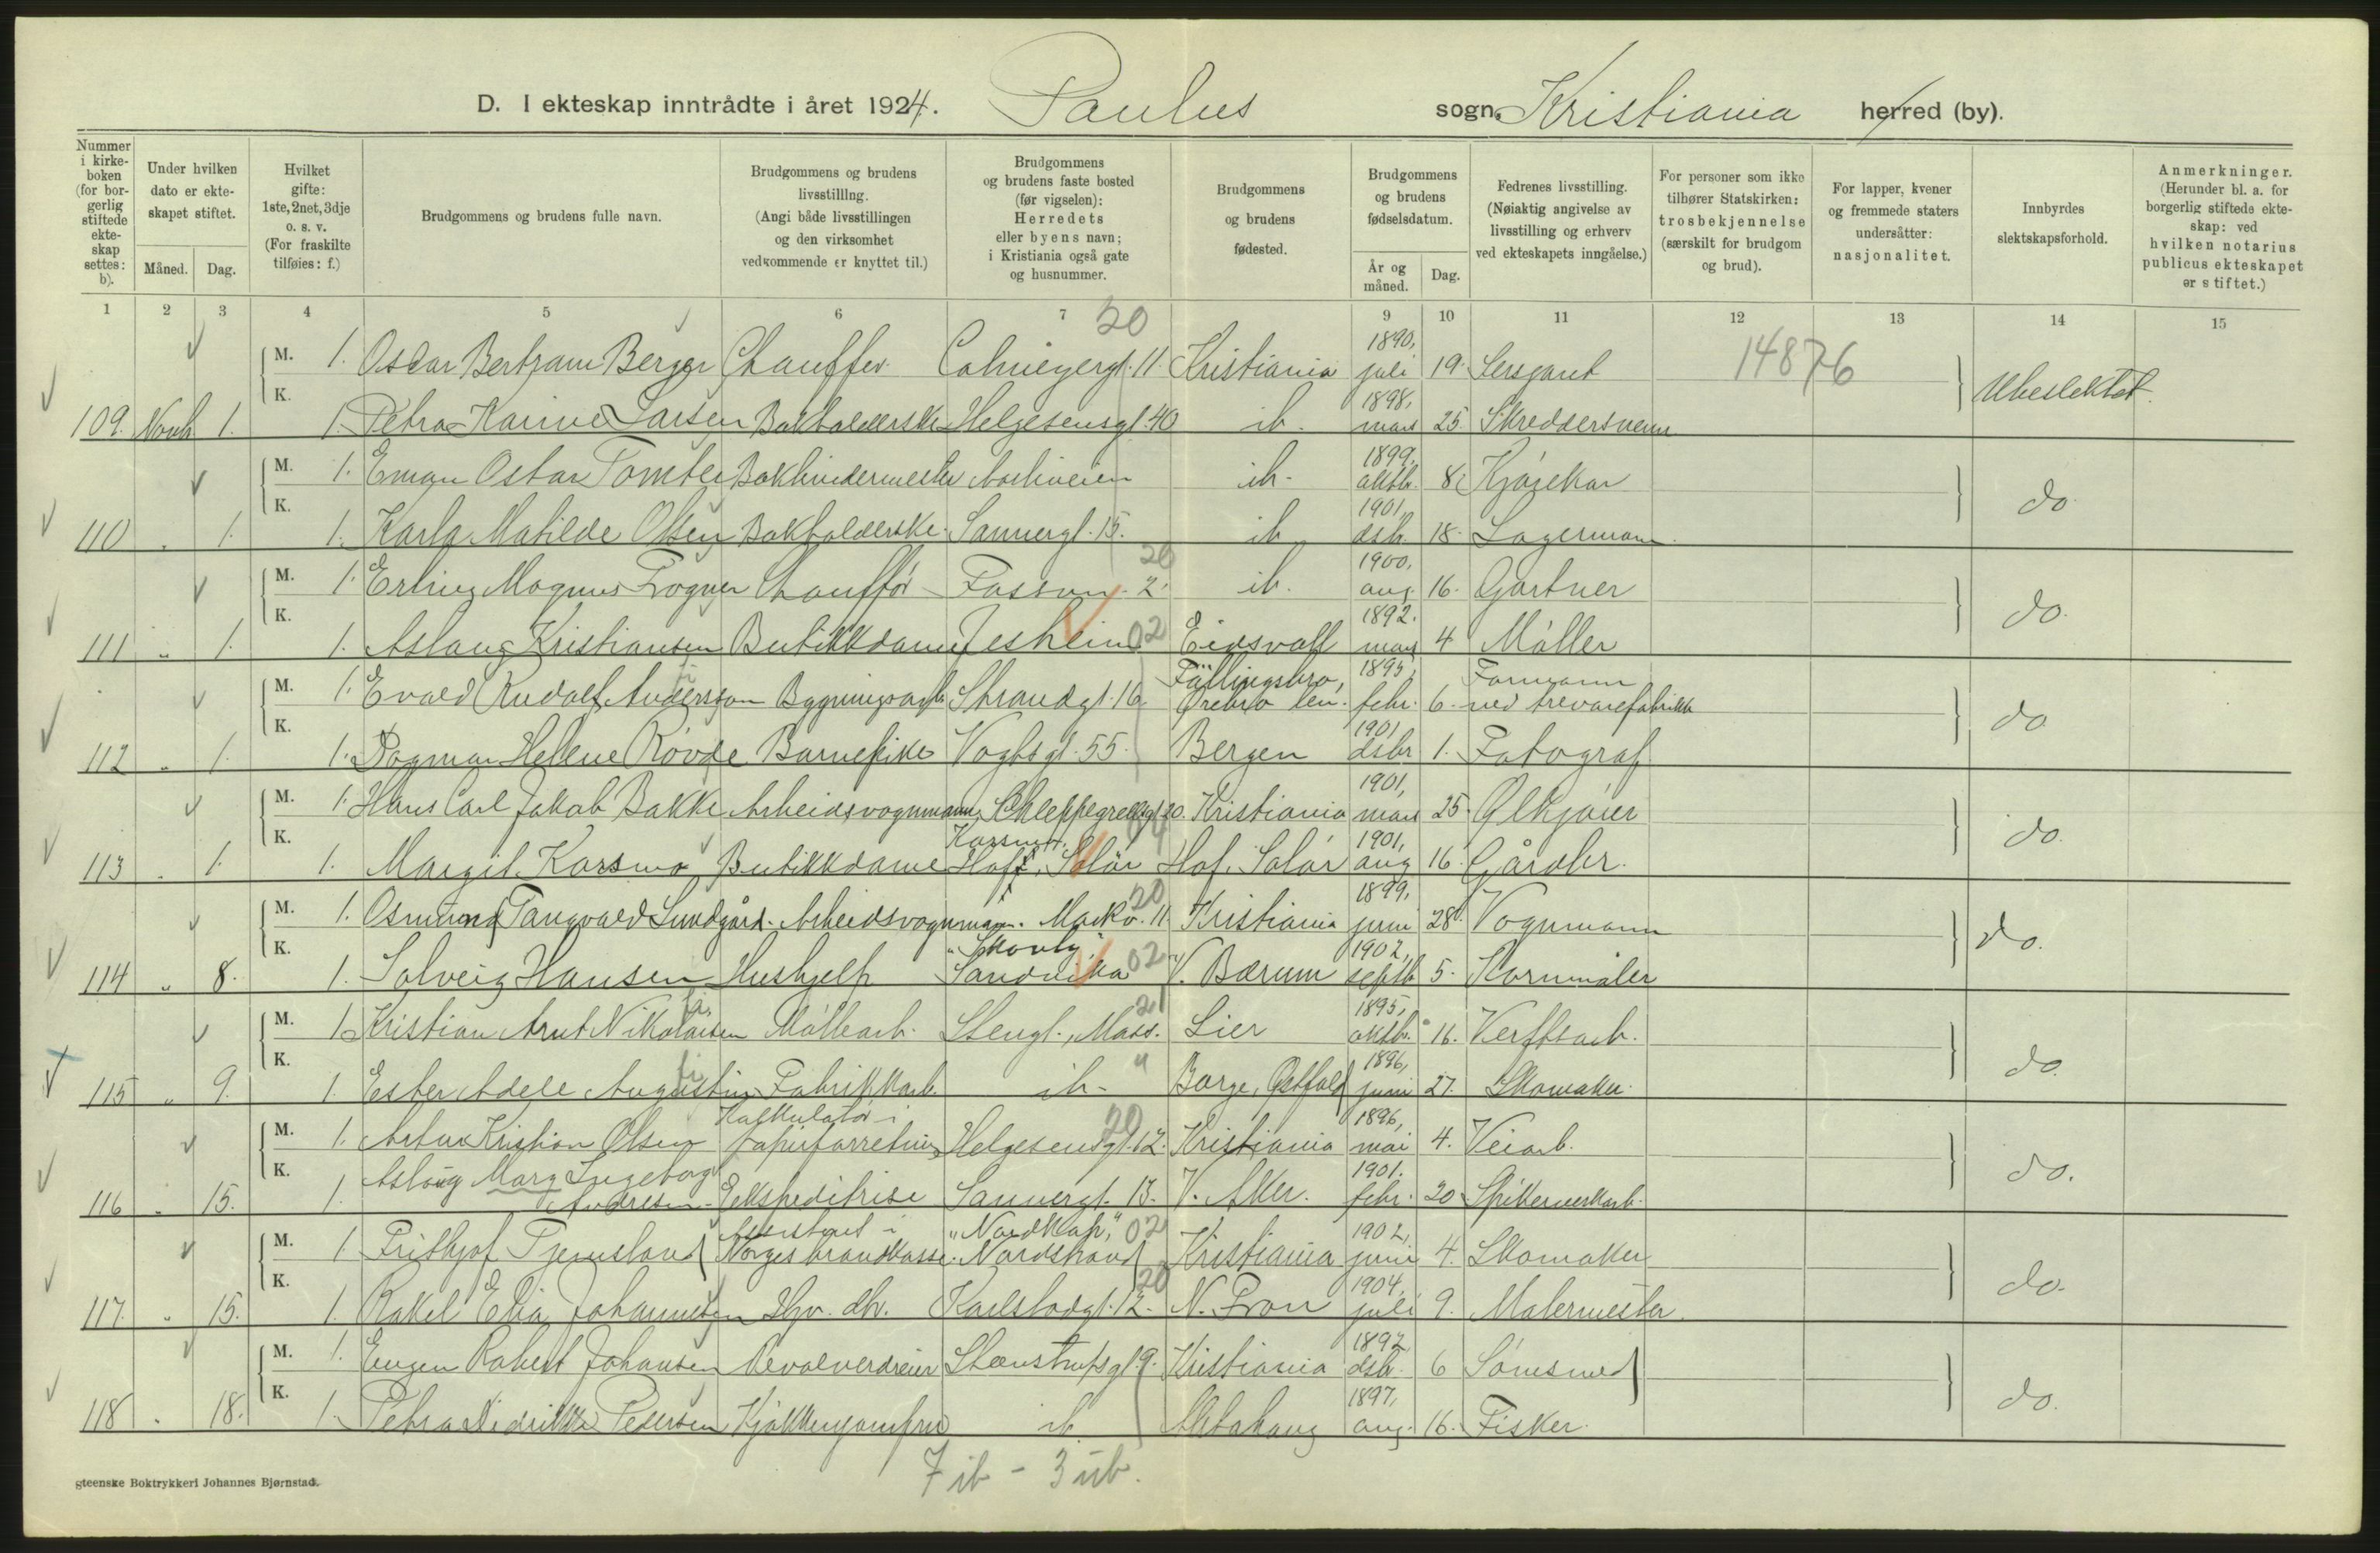 D. I ekteskap inntrådte i året 1924. Paulus sogn, Kristiania herred (by).
Nummer i kirkeboken (for borgerlig stiftede ekteskap settes: b).
Under hvilken dato er ekteskapet stiftet.
Måned. Dag.
Hvilket gifte: 1ste, 2net, 3dje o. s. v. (For fraskilte tilføies: f.)
Brudgommens og brudens fulle navn.
Brudgommens og brudens livsstilllng. (Angi både livsstillingen og den virksomhet vedkommende er knyttet til.)
Brudgommens og brudens faste bosted (før vigselen): Herredets eller byens navn; i Kristiania også gate og husnummer.
Brudgommens og brudens fødested.
Brudgommens og brudens fødselsdatum.
År og måned. Dag.
Fedrenes livsstilling. (Nøiaktig angivelse av livsstilling og erhverv ved ekteskapets inngåelse.)
For personer som ikke tilhører Statskirken: trosbekjennelse (særskilt for brudgom og brud).
For lapper, kvener og fremmede staters undersåtter: nasjonalitet.
Innbyrdes slektskapsforhold.
Anmerkninger. (Herunder bl. a. for borgerlig stiftede ekteskap: ved hvilken notarius publicus ekteskapet er stiftet.)
1 2 3 4 5 6 7 9 10 11 12 13 14 15
20
M. 1. Oskar Bertram Berger Chauffør Colmeyergt. 11 Kristiania 1890, juli 19. Sersjant 14876
K. 109. Novb 1. 1. Petra Karine Larsen Bokholderske Helgesensgt. 40 ib. 1898, mars 25. Skreddersvenn Ubeslektet
M. 1. Oskar Tomter Bokbindermester ib. 1899, oktbr. 8. Kjørekar
K. 110 " 1. 1. Karla Matilde Olsen Bokholderske Sannergt. 15. ib 1901, dsb. 18. Lagermann. do.
M. 1. Erling Magnus Frogner Chauffør 2. 20 ib. 1900, aug. 16. Gartner
K. 111 " 1. 1. Aslaug Kristiansen Butikkdame Jessheim 02 Eidsvoll 1892. mars 4 Møller do.
M. 1. Evald Rudolf Andersson Bygningsarb. Strandgt. 16 Fällingsbro, Ørebro len. 1895, febr. 6. Formann ved trevarefabrikk
K. 112 " 1. 1. Dagmar Hellene Røvde Barnepike Vogtsgt. 55. Bergen 1901 dsbr 1. Fotograf do
M. 1. Hans Carl Jakob Bakke Arbeidsvognmann Schleppegrellsgt 20. Kristiania 1901, mars 25. Ølkjører
K. 113 " 1. 1. Margit Korsmo Butikkdame Korsmo, Hof, Solør 04 Hof, Solør 1901, aug 16. Gårdbr. do.
M. 1. Osmund Tangvald Lundgård. Arbeidsvognmann. Markv. 11 20 Kristiania 1899, juni 28. Vognmann
K. 114 " 8. 1. Solveig Hansen Hushjelp "Skovly," Sandvika 02 V. Bærum 1902, septb. 5. Kornmåler do.
M. 1. Kristian Arnt Nikolaisen Møllearb. Stengt., Moss. 21 Lier 1895, oktbr. 16. Verftsarb.
K. 115 " 9. 1. Ester Adele Augustin Fabrikkarb. ib. " Borge, Østfold 1896, juni 27. Skomaker. do.
M. 1. Artur Kristian Olsen Kalkulatør i papirforretning Helgesensgt. 12. 20 Kristiania 1896, mai 4. Veiarb.
K. 116 " 15. 1. Aslaug Marg Ingeborg Andresen Ekspeditrise Sannergt. 13. V. Aker. 1901. febr. 20. Spikerverkarb. do.
M. 1. Frithjof Tjernsland Assistent i Norges brandkasse. "Nordkap," Nordstrand 02 Kristiania 1902, juni 4. Skomaker
K. 117. " 15. 1. Rakel Elia Johannessen Hjv. db. Karlstadgt. 12. 20 N. Fron 1904, juli 9. Malermester. do.
M. 1. Eugen Robert Johansen Revolverdreier Steenstrupsgt. 9. Kristiania 1892 dsb. 6 Sømsmed
K. 118 " 18. 1. Petra Nidrikke Pedersen Kjøkkenjomfru ib. Alstahaug 1897, aug. 16. Fisker. do.
7 ib - 3 ub.
gteenske Boktrykkeri Johannes Bjørnstad.